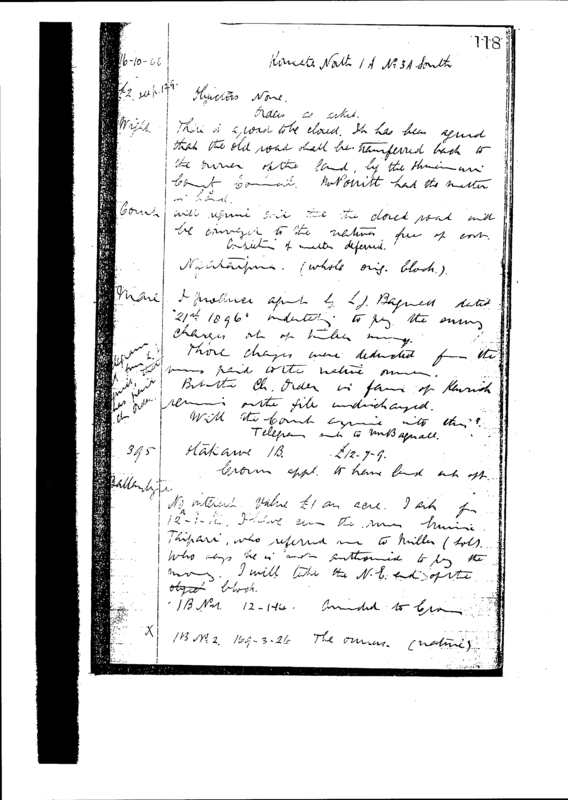 118
16-10-06
Komata North 1A No 3A South
Objectors None.
Orders as asked.
Wright
There is a road to be closed. It has been agreed
that the old road shall be transferred back to
the owner of the land, by the Ohinemuri
County Council. Mr Porritt had the matter
in hand.
Court
will require that the closed road will
be conveyed to the natives free of cost.
of matter deferred.
(whole orig. block.)
I produce by L.J. Bagnall dated
21st 1896 undertaking to pay the survey
charges out of timber money.
Those charges were deducted from the
paid to the native owners.
But the Ch. Order in favor of Kenrick
remains on the file undischarged.
Will the Court enquire into this?
Telegram sent to Mr Bagnall.
Telegram
has paid
Ch order.
395
Hakawe 1B. £12-7-9.
Crown appl. to have land cut off.
Ballantyne
No interest. Value £1 an acre. I ask for
I have seen the
who referred me to Miller (sols.
who says he is not authorised to pay the
money. I will take the N.E. end of the
block.
1B No1 12-1-14. Awarded to Crown
X
1B No 2. 169-3-26 The owners. (natives)